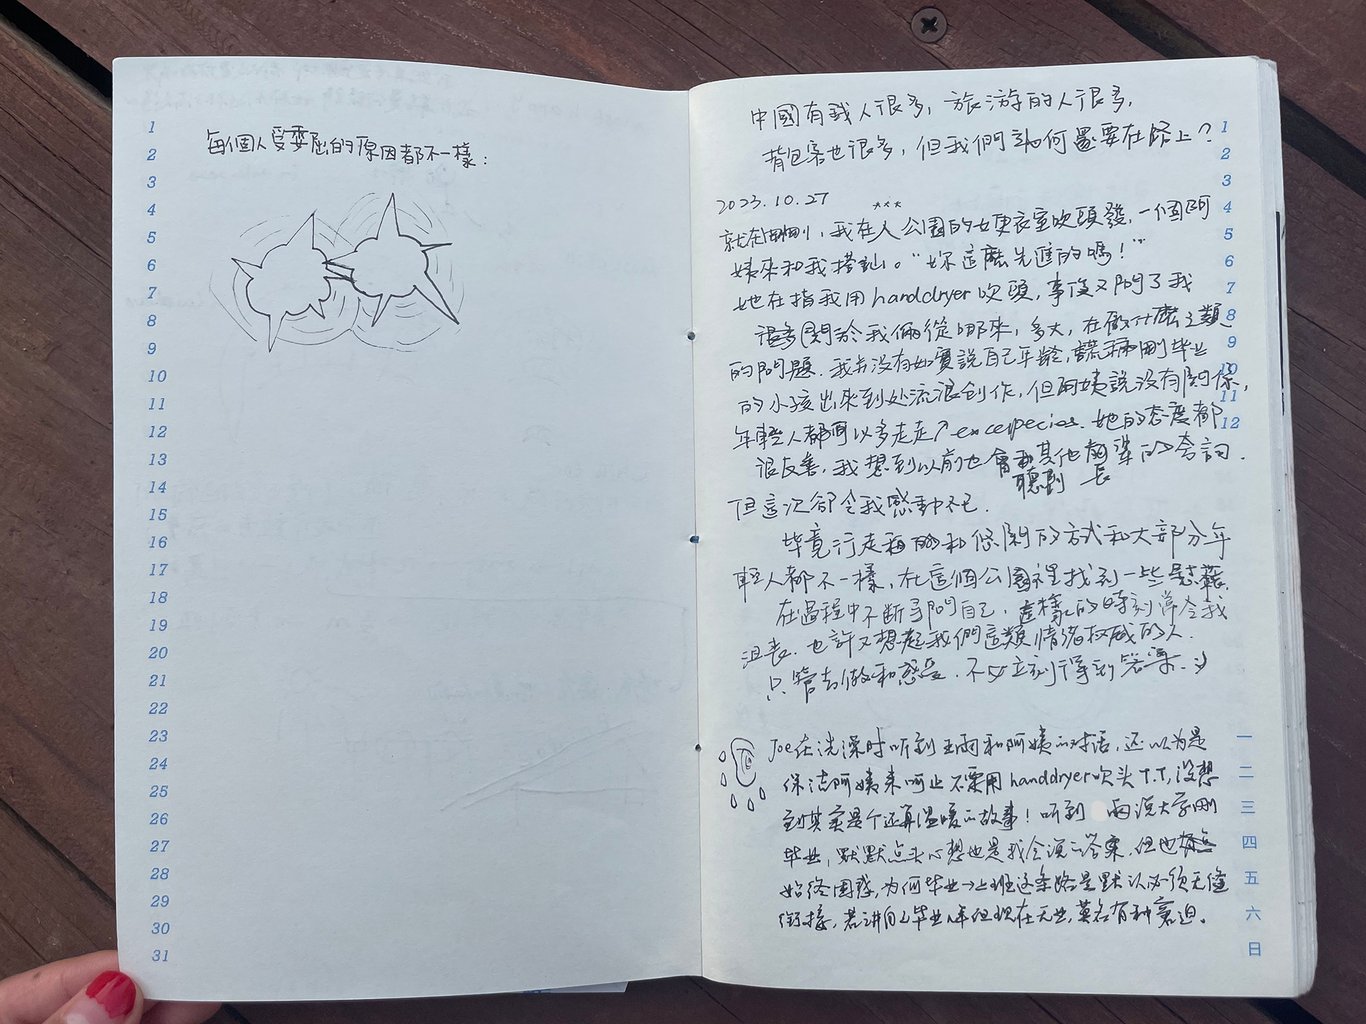 1
2
3
4
5
6
7
8
9
10
11
12
13
14
15
16
17
18
19
20
21
22
23
24
25
26
27
28
29
30
31
每個人受委屈的原因都不一樣：
中國有錢人很多，旅游的人很多，
背包客也很多，但我們為何還要在路上？
2023.10.27
就在剛剛，我在人公園的女更衣室吹頭發，一個阿
姨來和我搭訕。"妳這麽先進的嗎！"
她在指我用handdryer吹頭，事後又問了我
很多關於我倆從哪來，多大，在做什麽之類
的問題．我并没有如實說自己年齡，謊稱剛畢业
的小孩出來到处流浪創作，但阿姨說没有關係，
年輕人都可以多走走↗ 她的态度都
很友善，我想到以前也會聽到其他長輩的夸詞．
但這次卻令我感動不已．
毕竟行走和休閑的方式和大部分年
輕人都不一樣，在這個公園裡找到一些慰藉．
在過程中不斷尋問自己．這樣的時刻常令我
沮喪．也許又想起我們這類情绪权威的人．
只管去做和感受．不必立刻得到答案．:)
Joe在洗澡时听到雨和阿姨的对话，还以为是
保洁阿姨来呵止不要用handdryer吹头T.T，没想
到其实是个还算温暖的故事！听到 雨说大学刚
毕业，默默点头心想也是我会须的答案．但也
始终困惑，为何毕业→上班这条路是默认必须无缝
衔接，若讲自己毕业n年但现在无业，莫名有种窘迫。
1
2
3
4
5
6
7
8
9
10
11
12
一
二
三
四
五
六
日